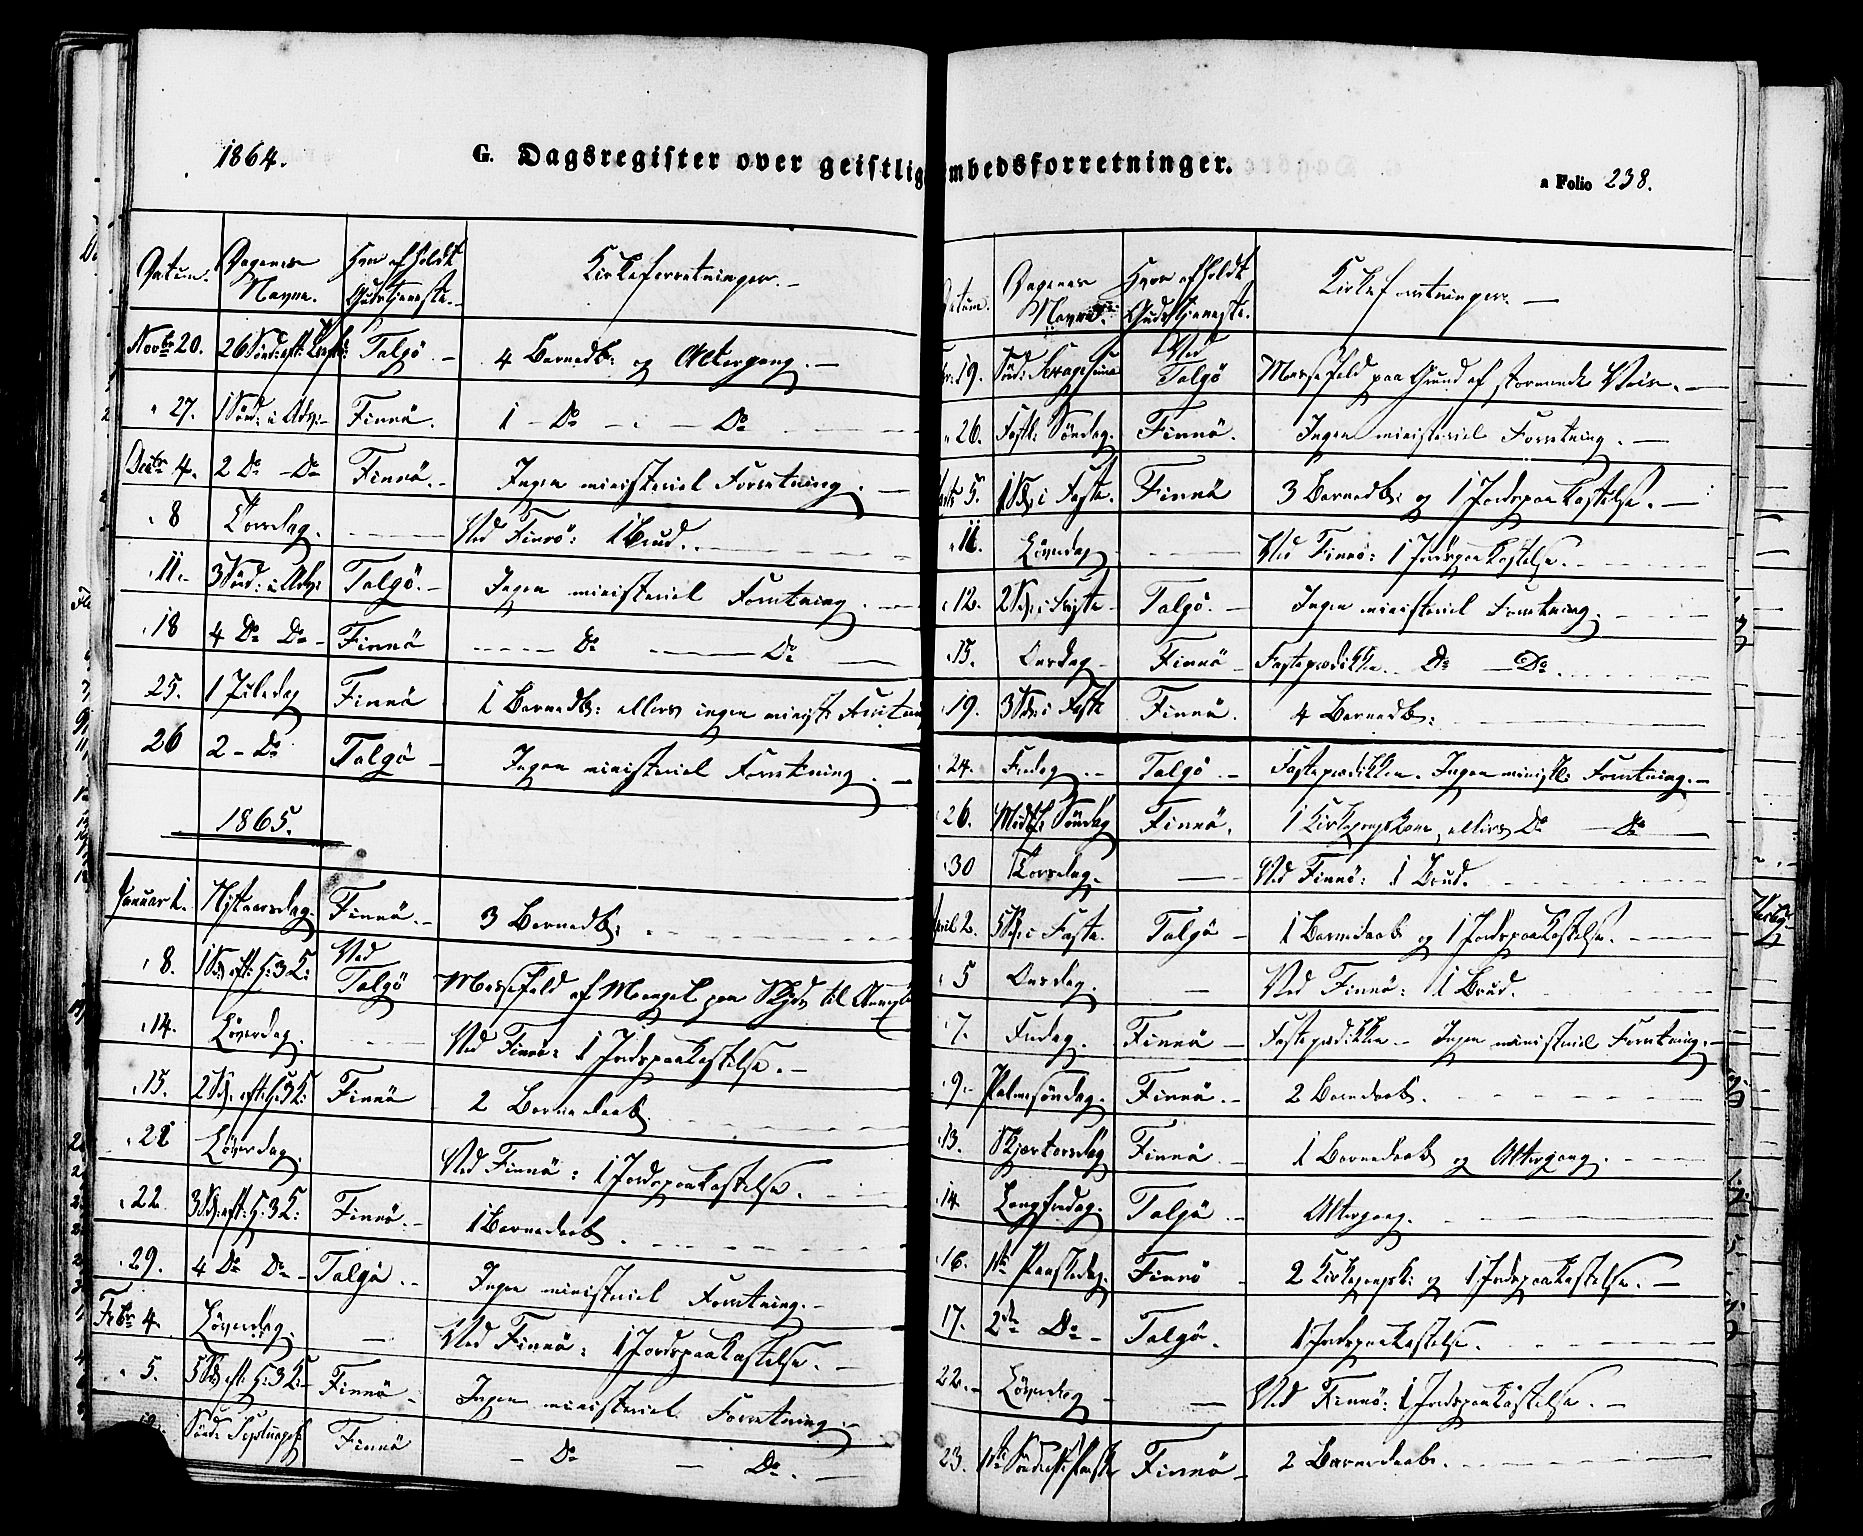 1864.
G. Dagsregister over geistlig
Datum. Dagenes Navne. Hvor afholdt Gudstjeneste. Kirkeforretninger.
Novbr 20. 26 Sönd: eft: Talgö 4 Barnedb: og Altergang.
" 27. 1 Sönd: i Adv: Finnö. 1 Do Do
Decbr 4. 2 Do Do Finnö. Ingen ministeriel Forretning.
" 8 Torsdag. Ved Finnö: 1 Brud.
" 11. 3 Sönd: i Adv: Talgö. Ingen ministeriel Forretning.
" 18 4 Do Do Finnö Do Do
25. 1 Juledag Finnö 1 Barnedb: ellers ingen minist:
26 2 Do Talgö Ingen ministeriel Forretning.
1865.
Januar 1. Nytaarsdag. Finnö. 3 Barnedb:
" 8. 1 S. eft: H: 3 K: Ved Talgö Messefald af Mangel paa Skyds til
" 14. Löverdag. Ved Finnö: 1 Jordspaakastelse.
" 15. 2 S. eft: H: 3 K: Finnö 2 Barnedaab.
" 21 Löverdag. Ved Finnö: 1 Jordspaakastelse.
" 22. 3 S. eft: H: 3 K: Finnö. 1 Barnedaab.
" 29. 4 Do Do Talgö. Ingen ministeriel Forretning.
Febr 4. Löverdag. Ved Finnö: 1 Jordspaakastelse.
" 5. 5 S. eft: H: 3 K: Finnö Ingen ministeriel Forretning.
Sönd: Septuages: Finnö Do Do.
mbedsforretninger.
a Folio 238.
Datum. Dagenes Navne. Hvor afholdt Gudstjeneste. Kirkeforretninger.
19. Sönd: Sexagesima Ved Talgö Messefald paa Grund af stormende Veir.
" 26. Fastl: Söndag. Finnö. Ingen ministeriel Forretning.
5. 1 S. i Faste. Finnö 3 Barnedb: og 1 Jordspaakastelse.
" 11. Löverdag Ved Finnö: 1 Jordspaakastelse.
" 12. 2 S. i Faste Talgö. Ingen ministeriel Forretning.
" 15. Onsdag Finnö Fasteprædiken. Do Do.
" 19. 3 S. i Faste Finnö. 4 Barnedb:
" 24. Fredag. Talgö. Fasteprædiken. Ingen ministl: Forretning.
" 26. Midtf: Söndag Finnö. 1 Kirkegangskone, ellers Do Do
" 30 Torsdag. Ved Finnö: 1 Brud.
April 2. 5 S. i Faste. Talgö 1 Barnedaab og 1 Jordspaakastelse.
" 5 Onsdag. Ved Finnö: 1 Brud.
" 7. Fredag. Finnö Fasteprædiken Ingen ministeriel Forretning.
" 9. Palmesöndag. Finnö. 2 Barnedaab.
" 13. Skjærtorsdag Finnö 1 Barnedaab og Altergang.
" 14. Langfredag. Talgö Altergang.
" 16. 1ste Paaskedag. Finnö 2 Kirkegangsk: og 1 Jordspaakastelse.
17. 2den Do Talgö. 1 Jordspaakastelse.
22. Löverdag Ved Finnö: 1 Jordspaakastelse.
23. 1ste Sönd: eft: Paaske Finnö 2 Barnedaab.